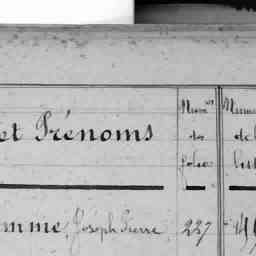 et Prénoms
Num os
des
folios
Numé
de l
list
mme, Joseph Pierre
227